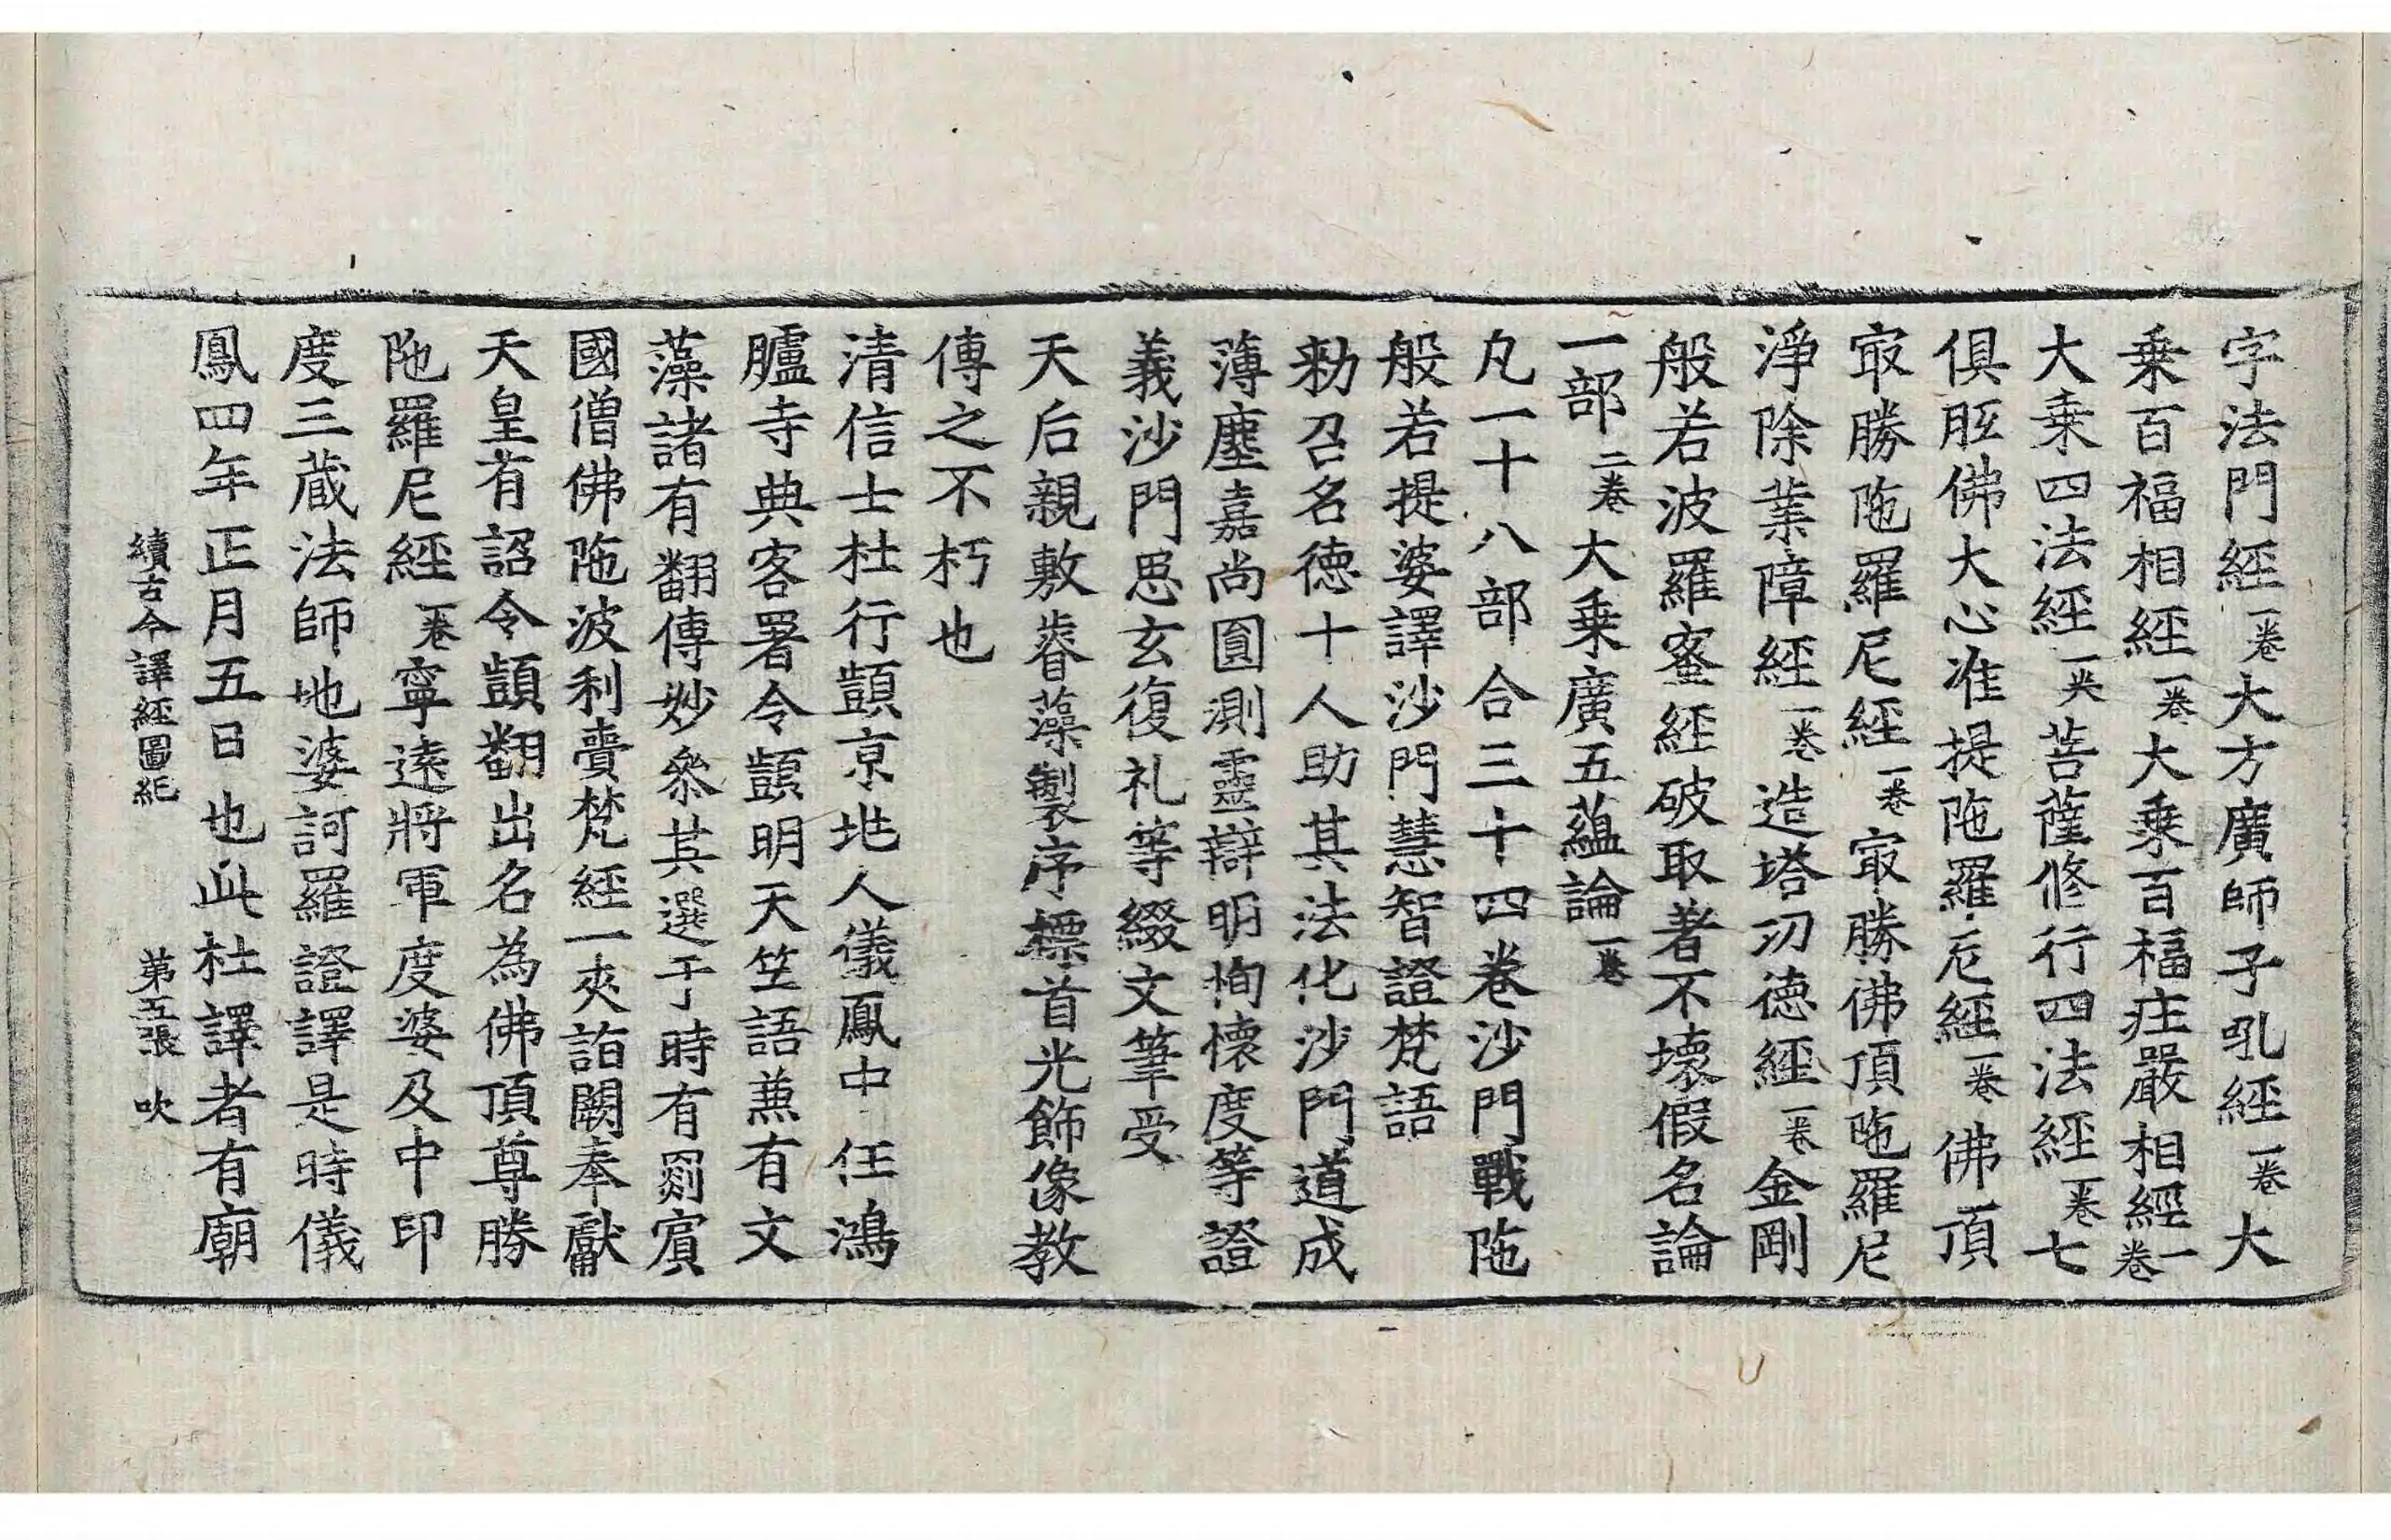 字法門經一卷大方廣師子吼經一卷大
乗百福相經一卷大乗百福庄嚴相經一卷
大乗四法經一夾菩薩修行四法經一卷七
俱胝佛大心准提陁羅尼經一卷佛頂
冣勝陁羅尼經一卷冣勝佛頂陁羅尼
淨除業障經一卷造塔功德經一卷金剛
般若波羅蜜經破取著不壞假名論
一部二卷大乗廣五蘊論一卷
凡一十八部合三十四卷沙門戰陁
般若提婆譯沙門慧智證梵語
勑召名德十人助其法化沙門道成
薄塵嘉尚圓測靈辯明恂懷度等證
義沙門思玄復礼等綴文筆受
天后親敷睿藻製序標首光飾像教
傳之不朽也
清信士杜行顗京兆人儀鳳中任鴻
臚寺典客署令顗明天竺語兼有文
藻諸有翻傳妙叅其選于時有罽賓
國僧佛陁波利賷梵經一夾詣闕奉獻
天皇有詔令顗翻出名為佛頂尊勝
陁羅尼經一卷寧遠將軍度婆及中印
度三蔵法師地婆訶羅證譯是時儀
鳳四年正月五日也此杜譯者有廟
續古今譯經圖紀 第五張 吹